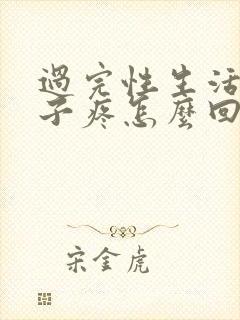 過完性生活
子疼怎麼回
宋金虎